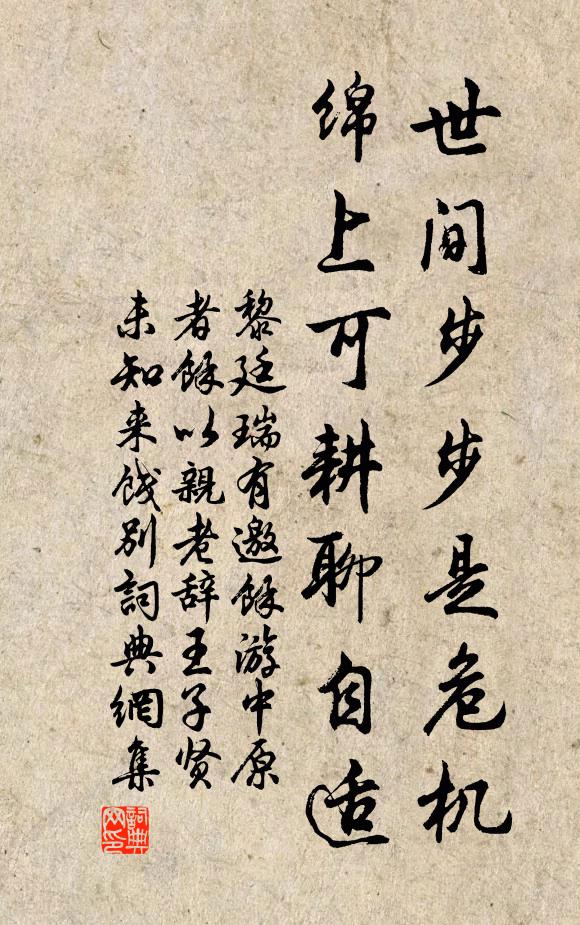 世间步步是危机
绵上可耕聊自适
黎廷瑞有邀餘游中原
者餘以親老辞王子贤
未知来饯别詞典網集
詞典网印